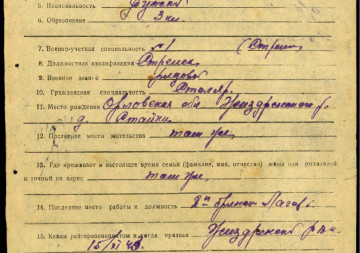 5. Национальность Русский
6. Образование 3 кл.
7. Военно-учетная специальность №1 (Стрелк
8. Должностная квалификация Стрелок
9. Военное звание рядовой
10. Гражданская специальность Столяр.
11. Место рождения Орловская обл Жиздренского р.
д.
12. Последнее место жительства там же
13. Где проживает в настоящее время семья (фамилия, имя, отчество) жены или родителей
и точный их адрес там же
14. Последнее место работы и должность
15. Каким райгорвоенкоматом и когда призван Жиздренский